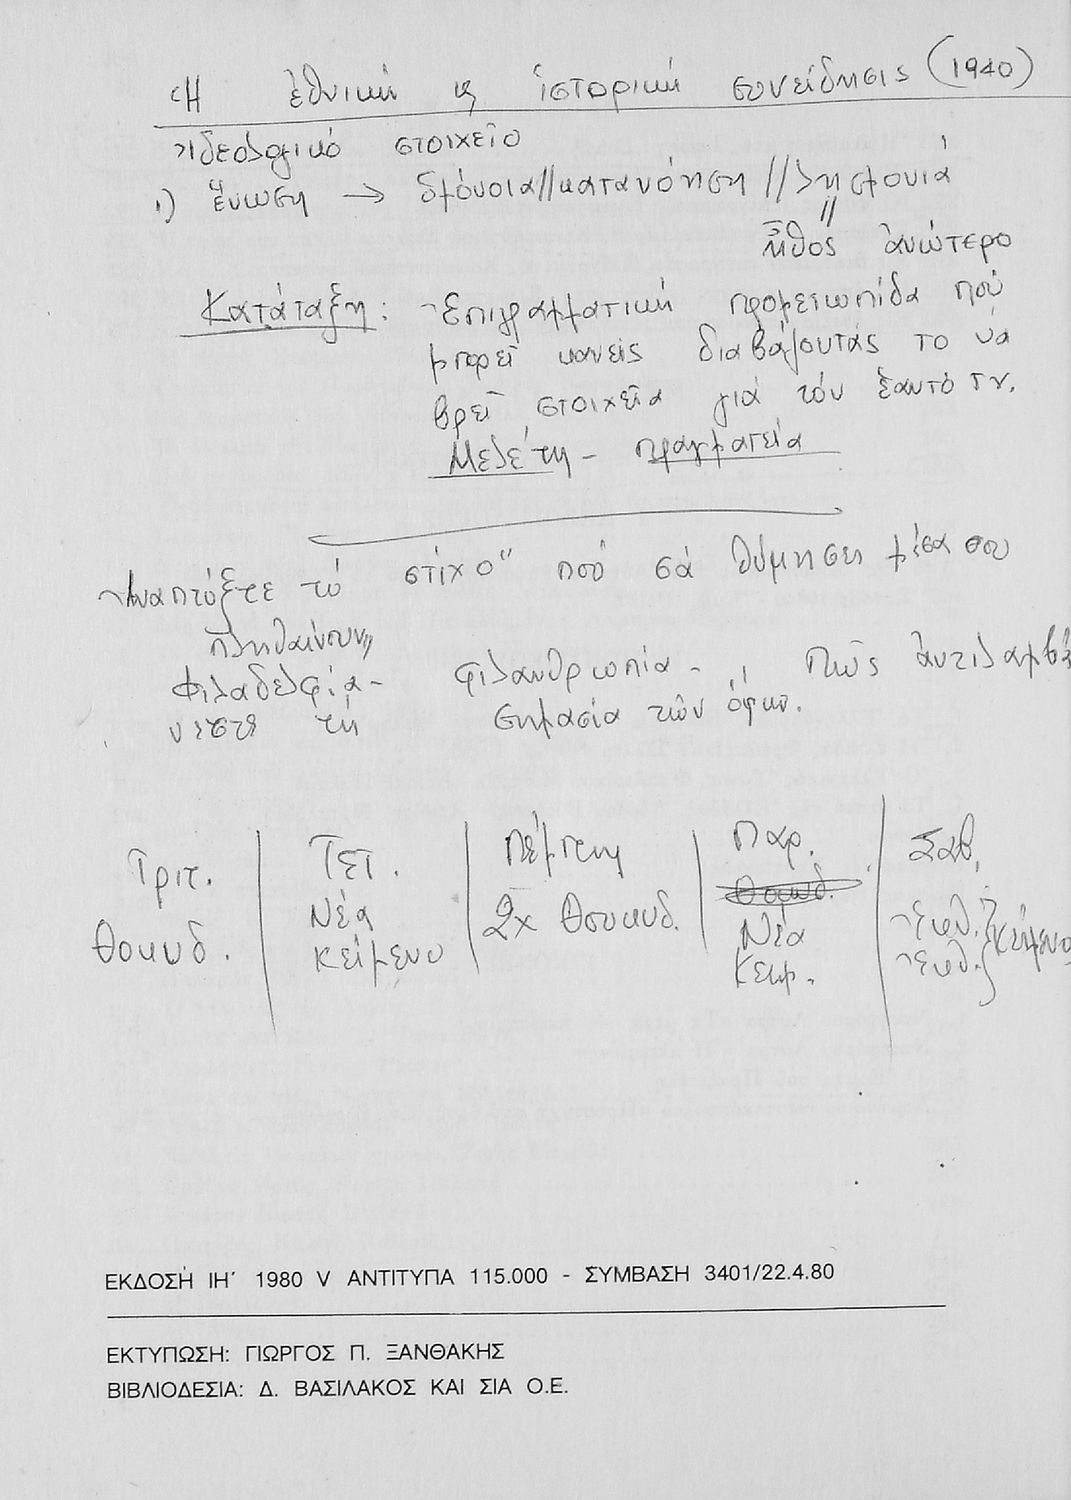 Ἡ ἐθνική κ ἱστορική συνείδησις (1940)
Ἰδεολογικό στοιχεῖο
1) Ἕνωση → ὁμόνοια//κατανόηση//
ἦθος ἀνώτερο
Κατάταξη: Ἐπιγραμματική προμετωπίδα πού
μπορεῖ κανείς διαβάζοντάς το νά
βρεῖ στοιχεῖα γιά τόν ἑαυτό του.
Μελέτη - πραγματεία
Ἀναπτύξτε τό στίχο" πού σά θύμηση μέσα σου
πληθαίνουν"
Φιλαδελφία - Φιλανθρωπία - Πῶς ἀντιλαμβά
νεστε τή σημασία τῶν ὅρων.
Τριτ. Τετ. Πέμπτη Παρ. Σαβ.
Θουκυδ. Νέα κείμενα 2χ Θουκυδ. Νέα Κειμ. κείμενα
ΕΚΔΟΣΗ ΙΗ΄ 1980 V ΑΝΤΙΤΥΠΑ 115.000 - ΣΥΜΒΑΣΗ 3401/22.4.80
ΕΚΤΥΠΩΣΗ: ΓΙΩΡΓΟΣ Π. ΞΑΝΘΑΚΗΣ
ΒΙΒΛΙΟΔΕΣΙΑ: Δ. ΒΑΣΙΛΑΚΟΣ ΚΑΙ ΣΙΑ Ο.Ε.